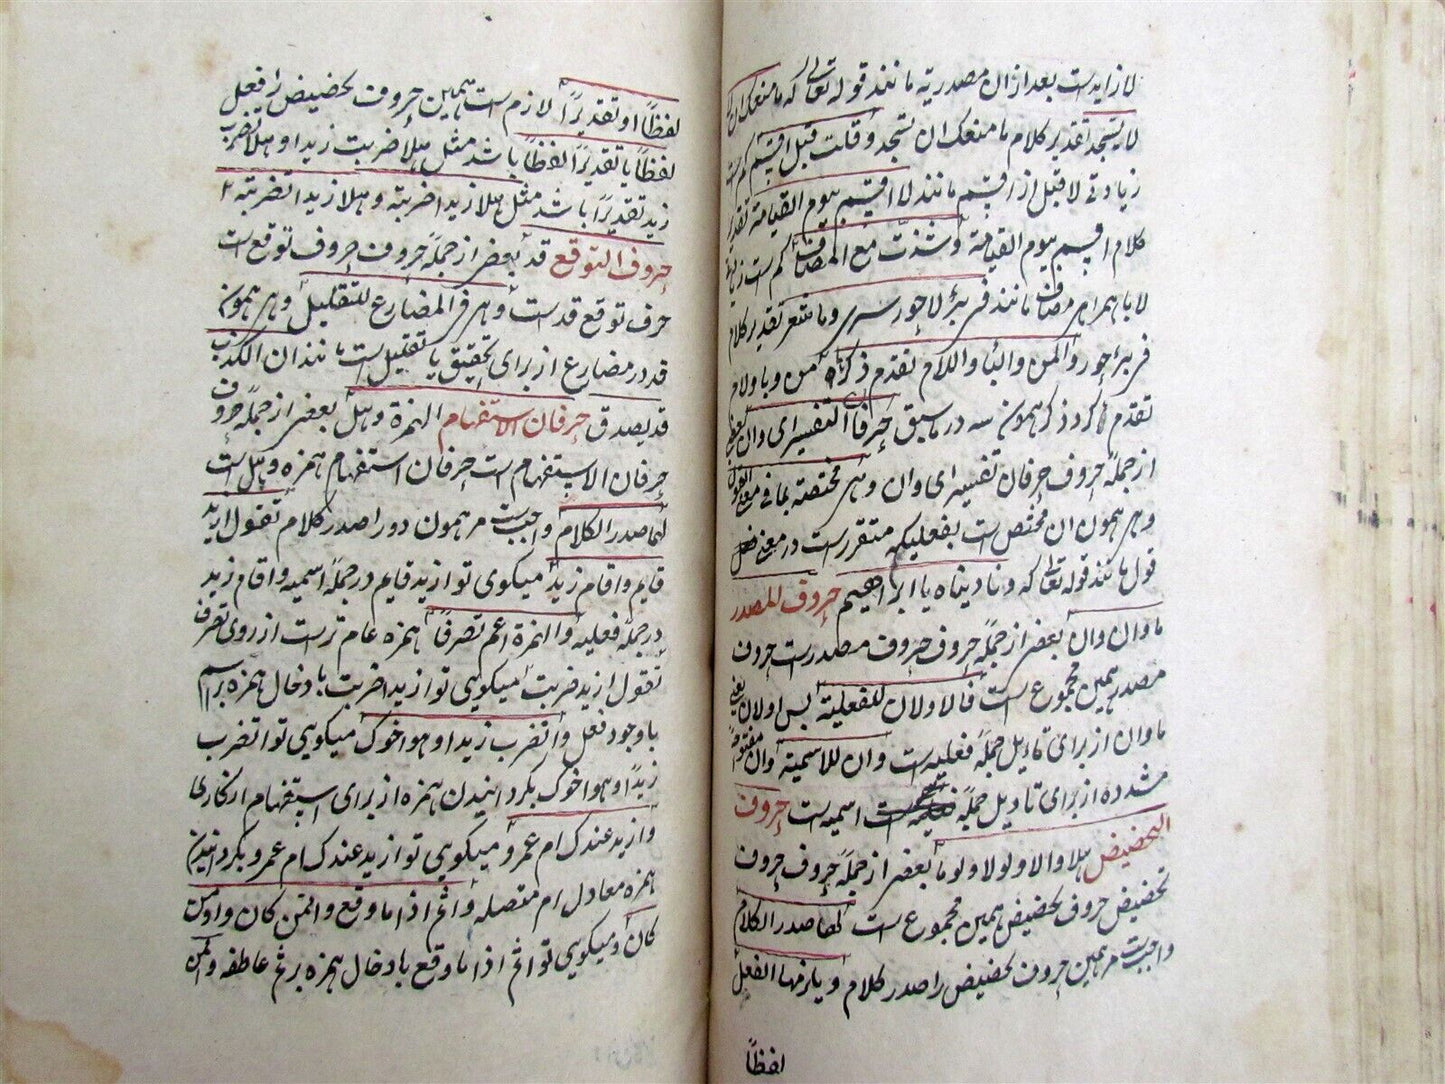 لا زایدست بعد از ان مصدریه مانند قوله تعالی که ما منعک ان لا
لا تسجد تقدیر کلام ما منعک ان تسجد وقلت قبل اقسم کم است
زیادتی لا قبل از اقسم مانند لا اقسم بیوم القیامة تقدیر
کلام اقسم بیوم القیامة وشذت مع المضاف کم است زیادتی
لا با همراهی مضاف مانند فی بئر لا حور سری وما شعر تقدیر کلام
فی بئر حور والمن والبا واللام تقدم ذکرها من وبا ولام
تقدم کرد ذکر همون سه در ما سبق حرفا التفسیر ای وان بعضی
از جملۀ حروف حرفان تفسیر ای وان وهی مختصة بما فی معنی القول
وهر همون ان مختص است بفعلیکه متقررست در معنی
قول مانند قوله تعالی که ونادیناه یا ابراهیم حروف المصدر
ما وان وان بعضی از جملۀ حروف حروف مصدرست حروف
مصدر همین مجموع است فالاولان للفعلیة پس اولان یعنی
ما وان از برای تاویل جملۀ فعلیه است وان للاسمیة وان مفتوحۀ
مشدده از برای تاویل جملۀ اسمیه است حروف
التحضیض هلا والا ولولا ولوما بعضی از جملۀ حروف حروف
تحضیض حروف تحضیض همین مجموع است لها صدر الکلام
واجبست مر همین حروف تحضیض را صدر کلام ویلزمها الفعل
لفظًا
لفظًا او تقدیرًا لازم است همین حروف تحضیض را فعل
لفظًا یا تقدیرًا لفظًا باشد مثل هلا ضربت زیدا وهلا تضرب
زید تقدیرًا باشد مثل هلا زیدا ضربته وهلا زیدا تضربه
حروف التوقع قد بعضی از جملۀ حروف حروف توقع است
حرف توقع قد است وهی فی المضارع للتقلیل وهر همون
قد در مضارع از برای تحقیق یا تقلیل است مانند ان الکذوب
قد یصدق حرفان الاستفهام الهمزة وهل بعضی از جملۀ حروف
حرفان الاستفهام است حرفان استفهام همزه وهل است
لهما صدر الکلام واجبست مر همون دو را صدر کلام تقول ازید
قایم واقام زید میکوی تو ازید قایم در جملۀ اسمیه واقام زید
در جملۀ فعلیه والهمزة اعم تصرفًا همزه عام ترست از روی تصرف
تقول ازید ضربت میکویی تو ازید اضربت با دخال همزه بر اسم
با وجود فعل واتضرب زیدا وهو اخوک میکویی تو اتضرب
زیدًا وهو اخوک بکردانیدن همزه از برای استفهام انکاری
وازید عندک ام عمرو میکویی تو ازید عندک ام عمرو بکردانیدن
همزه معادل ام متصله واثم اذا ما وقع وافمن کان واومن
کان ومیکویی تو اثم اذا ما وقع با دخال همزه بر ثم عاطفه وافمن